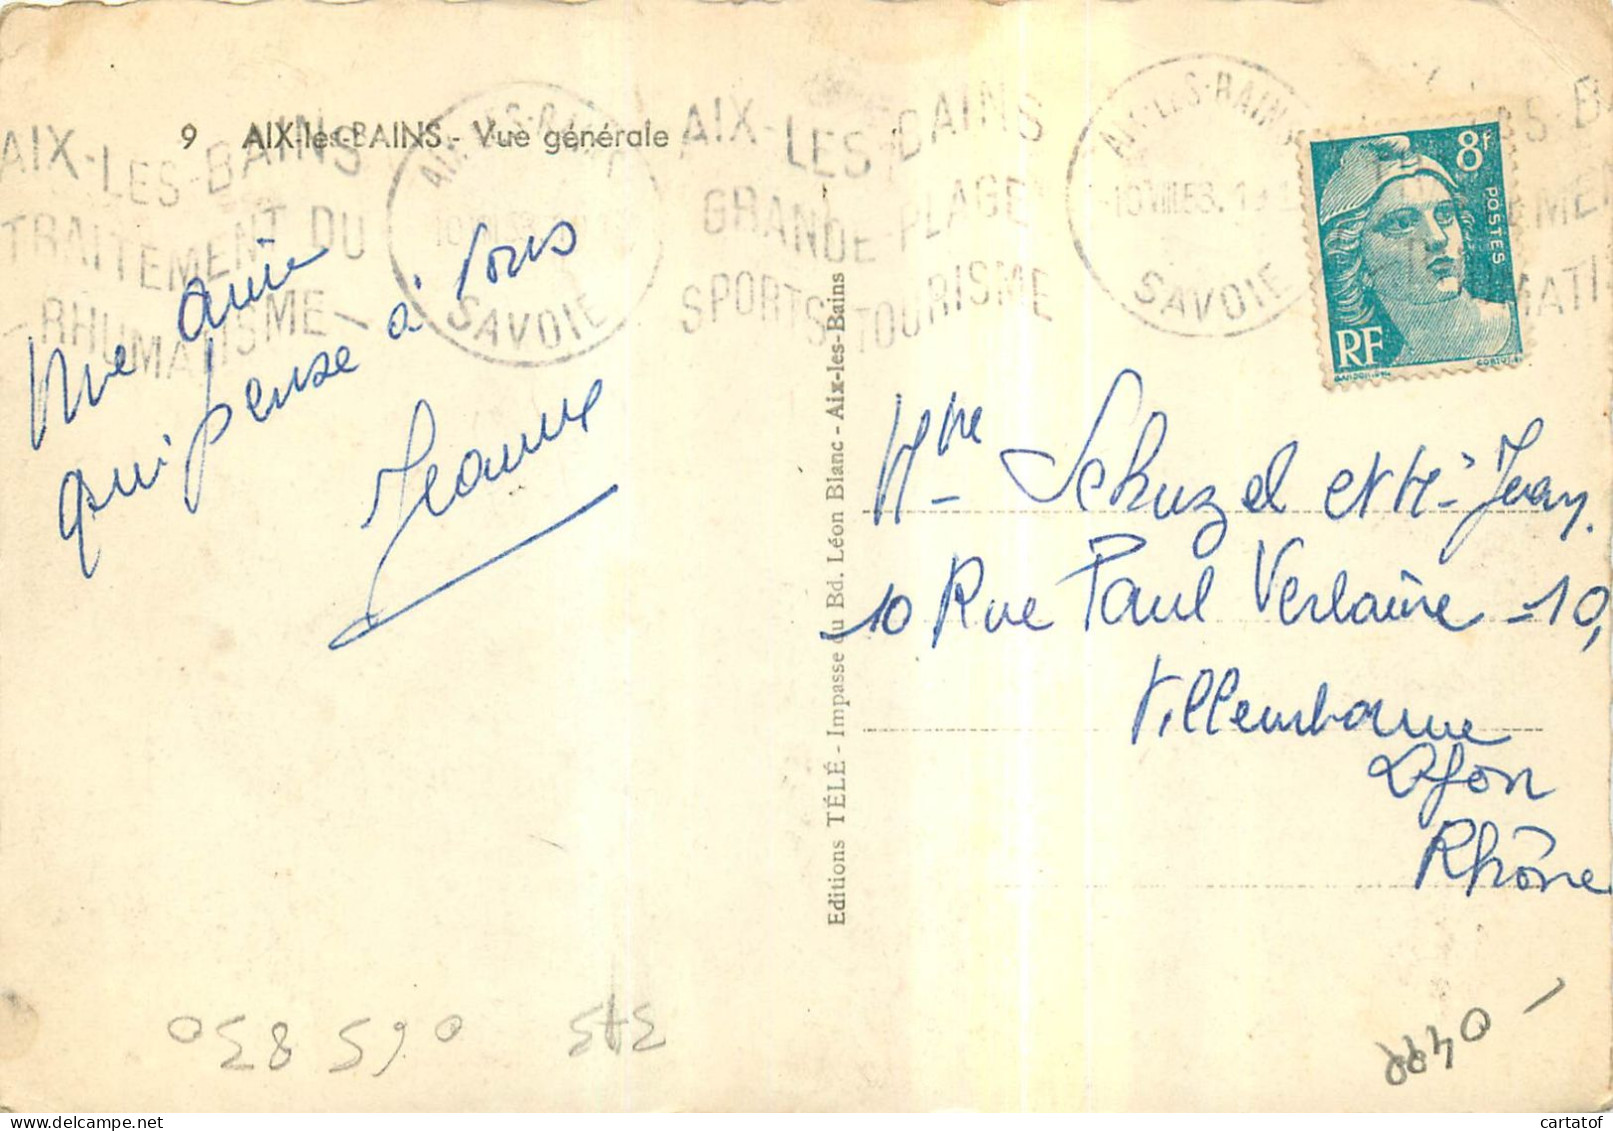 9 AIX-les-BAINS - Vue générale
AIX-LES-BAINS
TRAITEMENT DU
RHUMATISME
AIX-LES-BAINS
SAVOIE
AIX-LES-BAINS
GRANDE PLAGE
SPORTS TOURISME
AIX-LES-BAINS
SAVOIE
8f
POSTES
RF
GANDON
CORTOT
Une amie
qui pense à vous
Jeanne
Mme Schuzel et Mr Jean
10 Rue Paul Verlaine - 10,
Villeurbanne
Lyon
Rhône
Editions TÉLÉ - Impasse du Bd. Léon Blanc - Aix-les-Bains
cartatof